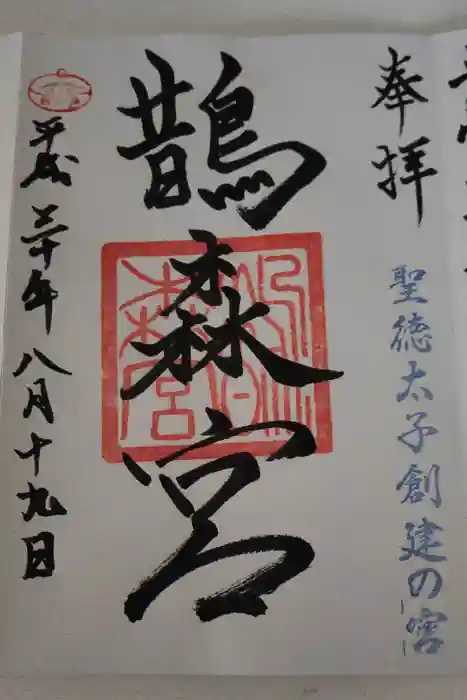 奉拝
聖徳太子創建の宮
鵲森宮
平成三十年八月十九日